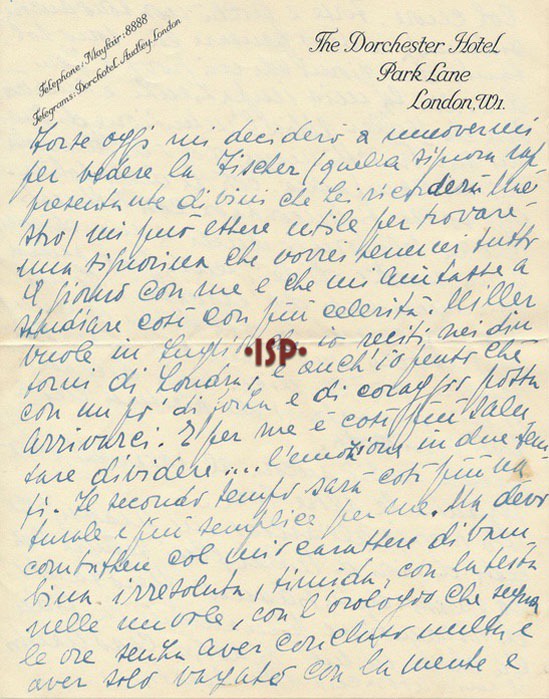 Telephone: Mayfair: 8888
Telegrams: Dorchotel, Audley, London
The Dorchester Hotel
Park Lane
London, W1.
Forse oggi mi deciderò a muovermi
per vedere la Fischer (quella signora rap
presentante di vini che Lei ricorderà Mae
stro) mi può essere utile per trovare
una signorina che vorrei tenermi tutto
il giorno con me e che mi aiutasse a
studiare così con più celerità. Miller
vuole in Luglio che io reciti nei din
torni di Londra, e anch'io penso che
con un pò di forza e di coraggio possa
arrivarci. E per me è così più salu
tare dividere .... l'emozione in due tem
pi. Il secondo tempo sarà così più na
turale e più semplice per me. Ma devo
combattere col mio carattere di bam
bina irresoluta, timida, con la testa
nelle nuvole, con l'orologio che segna
le ore senza aver concluso nulla e
aver solo vagato con la mente e
•ISP•